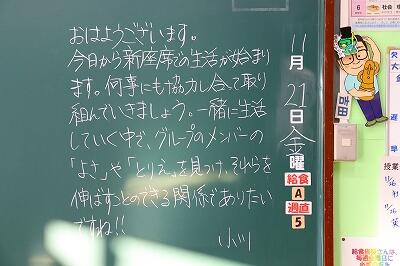 おはようございます。
今日から新座席での生活が始まり
ます。何事にも協力し合って取り
組んでいきましょう。一緒に生活
していく中で、グループのメンバーの
「よさ」や「とりえ」を見つけ、それらを
伸ばすことのできる関係でありたい
ですね!!
小川
11月21日金曜
給食
A
週直
5
吉田
6
社会
欠
大
金
遅
早
授業
11/26
11/26
給食